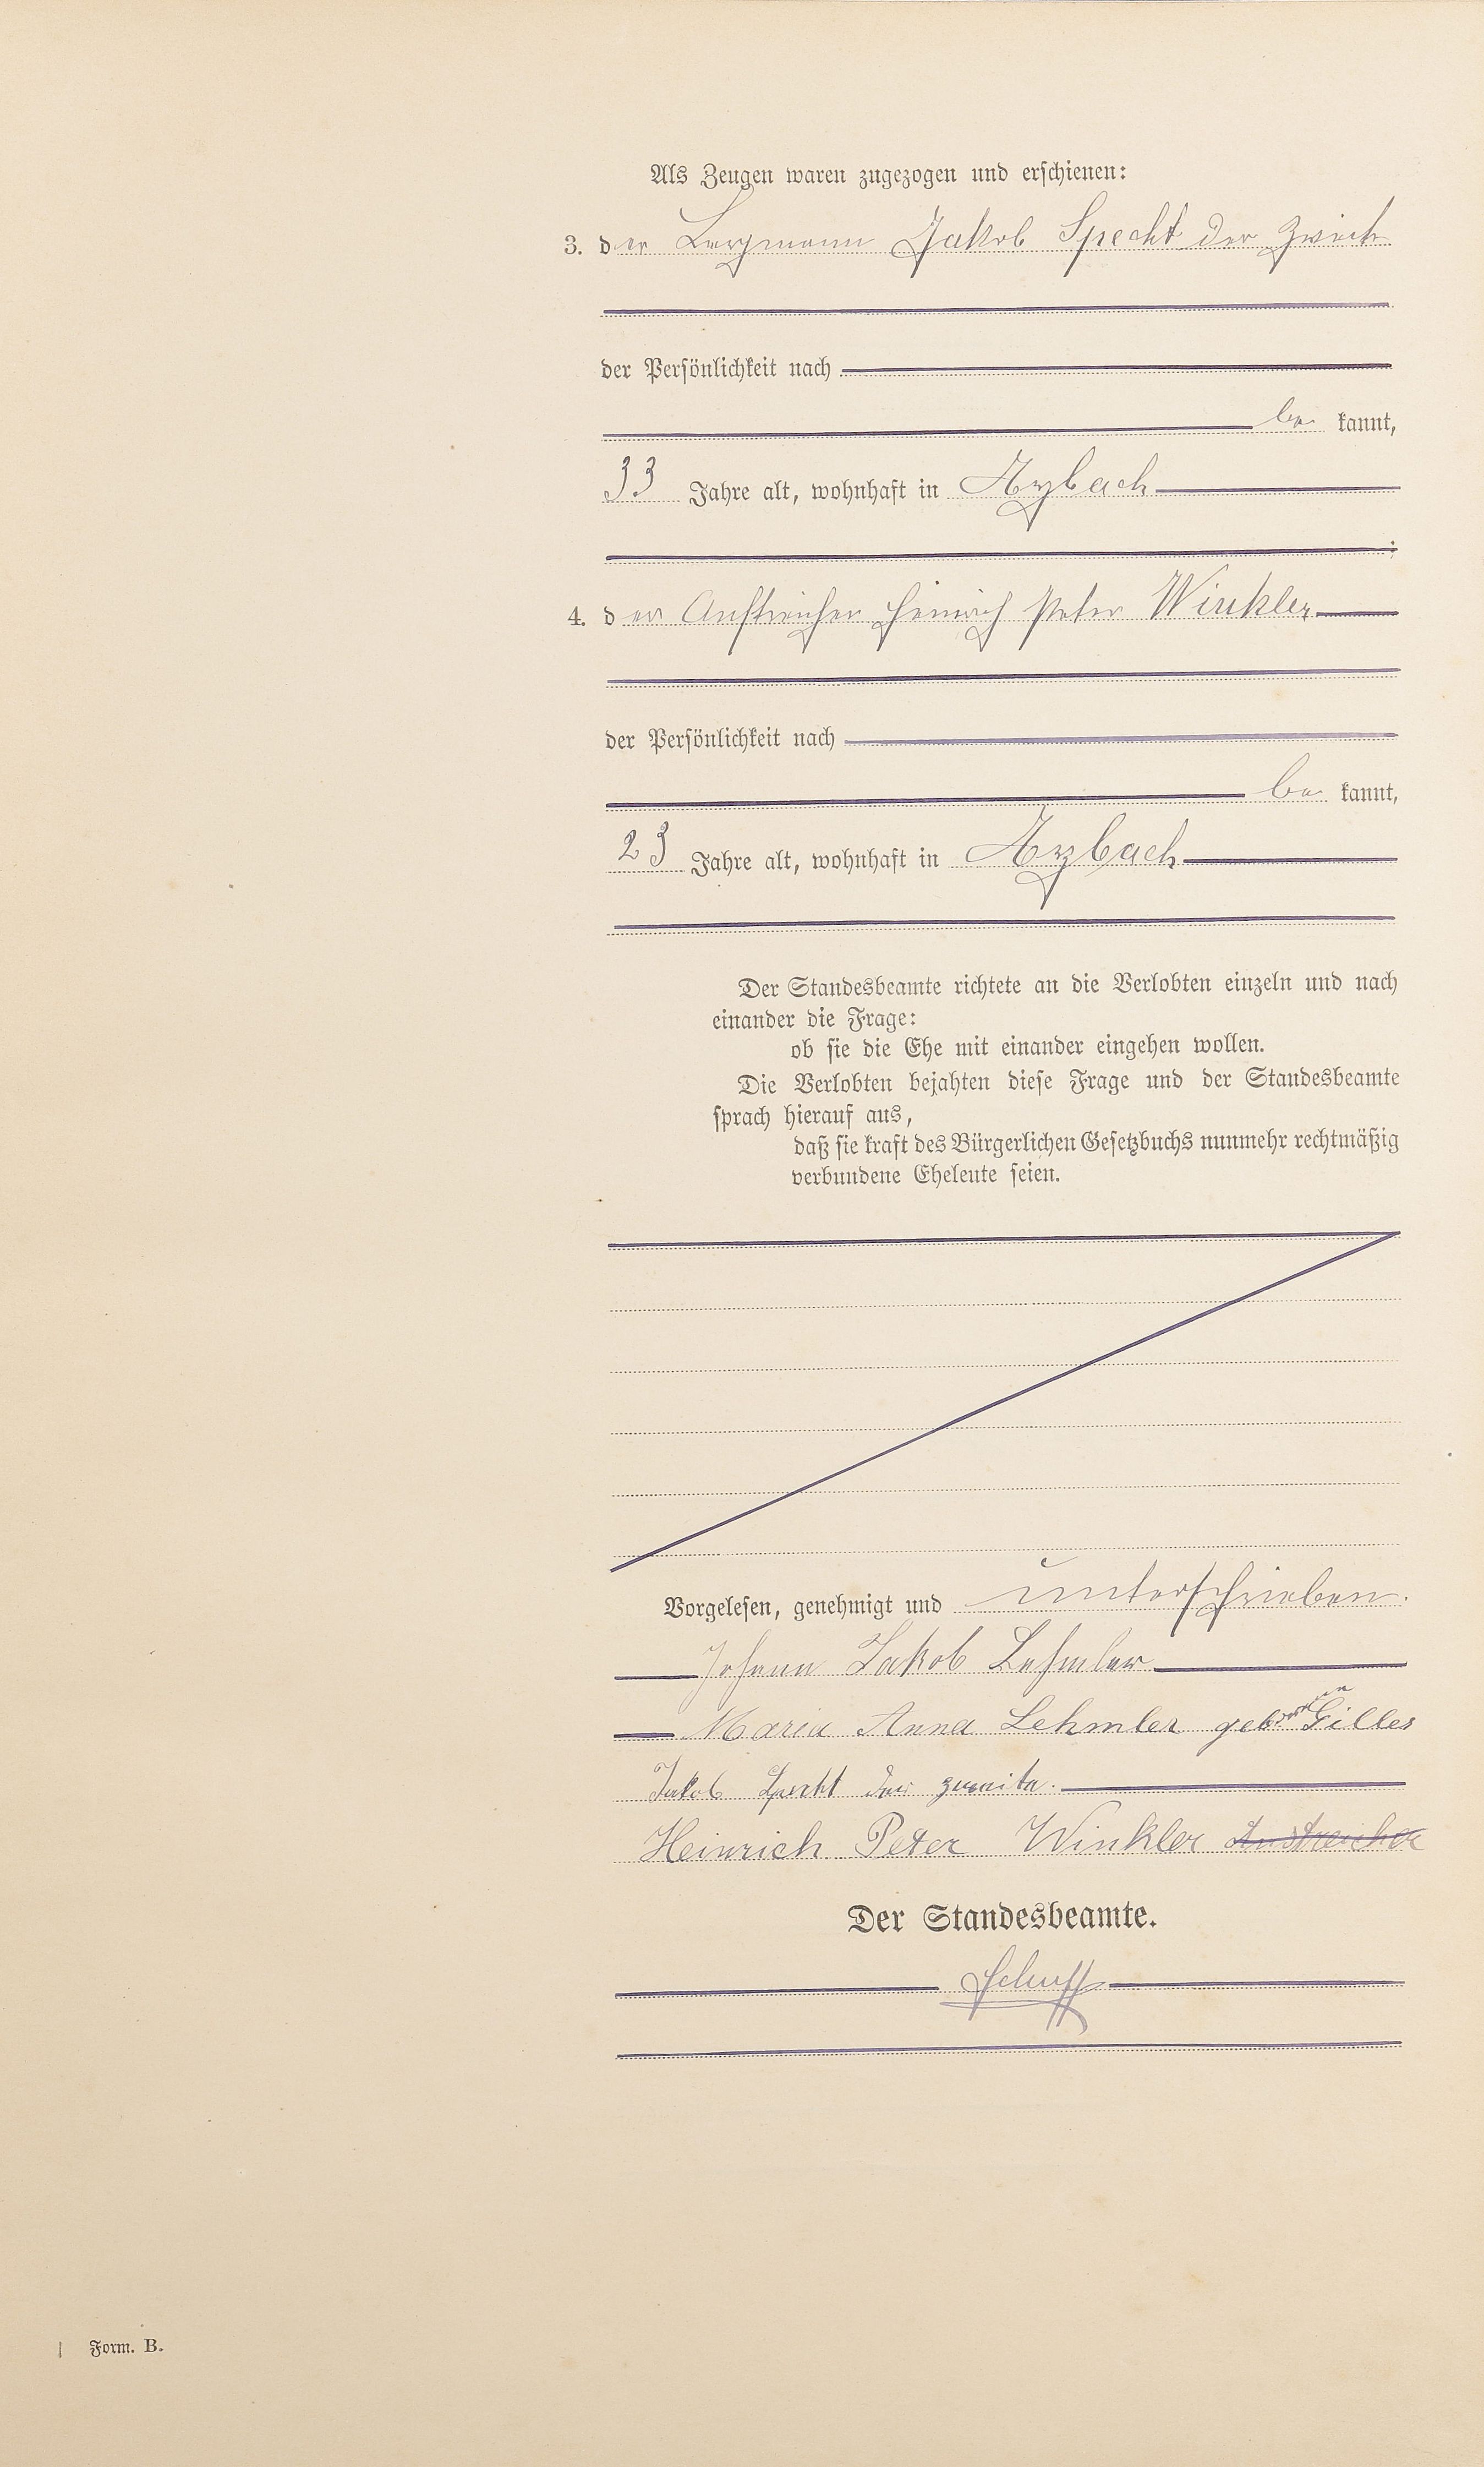 Als Zeugen waren zugezogen und erschienen:
3. der Bergmann Jakob Specht der Zweite
der Persönlichkeit nach
be kannt,
33 Jahre alt, wohnhaft in Arzbach
;
4. der Anstreicher Heinrich Peter Winkler
der Persönlichkeit nach
be kannt,
23 Jahre alt, wohnhaft in Arzbach
Der Standesbeamte richtete an die Verlobten einzeln und nach
einander die Frage:
ob sie die Ehe mit einander eingehen wollen.
Die Verlobten bejahten diese Frage und der Standesbeamte
sprach hierauf aus,
daß sie kraft des Bürgerlichen Gesetzbuchs nunmehr rechtmäßig
verbundene Eheleute seien.
Vorgelesen, genehmigt und unterschrieben.
Johann Jakob Lehmler
Maria Anna Lehmler geborenen Gilles
Jakob Specht der zweite.
Heinrich Peter Winkler Anstreicher
Der Standesbeamte.
Form. B.